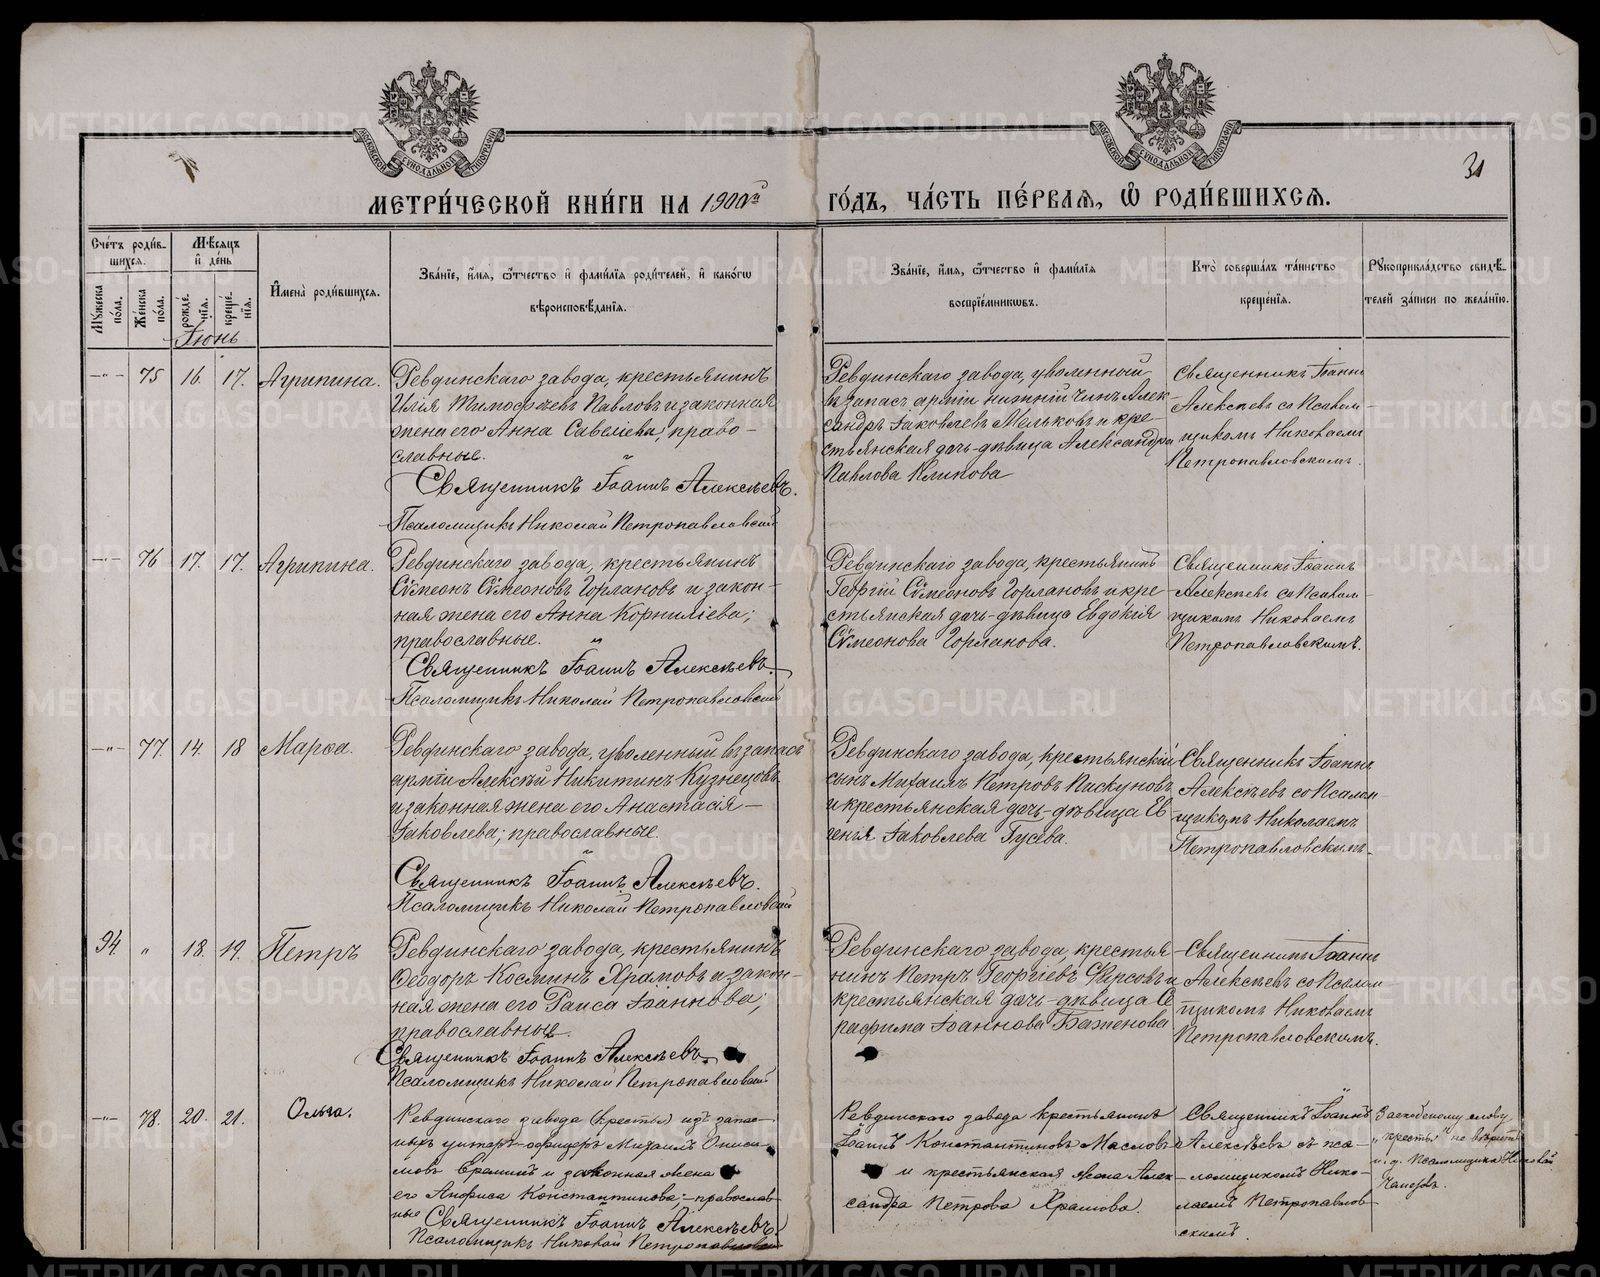 31
МЕТРИ́ЧЕСКОЙ КНИ́ГИ НА 1900й ГО́ДЪ, ЧА́СТЬ ПЕ́РВАЯ, Ѡ РОДИ́ВШИХСЯ.
Сче́тъ роди́в-
шихся.
Мѣ́сяцъ
и҆ де́нь
Мꙋжеска по́ла.
Же́нска по́ла.
рожде́нїѧ.
креще́нїѧ.
И҆мена̀ роди́вшихся.
Зва́нїе, и҆́мя, ѻ҆́тчество и҆ фами́лїя роди́телей, и҆ како́гѡ
вѣроисповѣ́данїя.
Зва́нїе, и҆́мя, ѻ҆́тчество и҆ фами́лїя
воспрїе́мникѡвъ.
Кто̀ соверша́лъ та́инство
креще́нїя.
Рꙋкоприкла́дство свидѣ́-
телей за́писи по жела́нїю.
Іюнь
—"— 75 16. 17. Агрипина.
Ревдинскаго завода, крестьянинъ
Илія Тимофѣевъ Павловъ и законная
жена его Анна Савеліева; право-
славные.
Священникъ Іоаннъ Алексѣевъ.
Псаломщикъ Николай Петропавловскій
Ревдинскаго завода, уволенный
въ запасъ арміи нижній чинъ Алек-
сандръ Іаковлевъ Мельковъ и кре-
стьянская дочь-дѣвица Александра
Павлова Климова
Священникъ Іоаннъ
Алексѣевъ со Псалом-
щикомъ Николаемъ
Петропавловскимъ.
—"— 76 17. 17. Агрипина.
Ревдинскаго завода, крестьянинъ
Сѵмеонъ Сѵмеоновъ Горлановъ и закон-
ная жена его Анна Корниліева;
православные.
Священникъ Іоаннъ Алексѣевъ.
Псаломщикъ Николай Петропавловскій
Ревдинскаго завода, крестьянинъ
Георгій Сѵмеоновъ Горлановъ и кре-
стьянская дочь-дѣвица Евдокія
Сѵмеонова Горланова.
Священникъ Іоаннъ
Алексѣевъ со Псалом-
щикомъ Николаемъ
Петропавловскимъ.
—"— 77 14. 18 Марѳа.
Ревдинскаго завода, уволенный въ запасъ
арміи Алексѣй Никитинъ Кузнецовъ
и законная жена его Анастасія-
Іаковлева; православные.
Священникъ Іоаннъ Алексѣевъ.
Псаломщикъ Николай Петропавловскій
Ревдинскаго завода, крестьянскій
сынъ Михаилъ Петровъ Пискуновъ
и крестьянская дочь-дѣвица Ев
генія Іаковлева Гусева.
Священникъ Іоаннъ
Алексѣевъ со Псалом-
щикомъ Николаемъ
Петропавловскимъ.
94. " 18. 19. Петръ
Ревдинскаго завода, крестьянинъ
Ѳеодоръ Косминъ Храмовъ и закон-
ная жена его Раиса Іоаннова;
православные.
Священникъ Іоаннъ Алексѣевъ.
Псаломщикъ Николай Петропавловскій
Ревдинскаго завода, крестья-
нинъ Петръ Георгіевъ Фирсовъ и
крестьянская дочь-дѣвица Се
рафима Іоаннова Баженова
Священникъ Іоаннъ
Алексѣевъ со Псалом-
щикомъ Николаемъ
Петропавловскимъ.
—"— 78. 20. 21. Ольга.
Ревдинскаго завода (крестья) изъ запас-
ныхъ унтеръ-офицеръ Михаилъ
Ераминъ и законная жена
его Анфиса Константинова;-православ-
ные
Священникъ Іоаннъ Алексѣевъ.
Псаломщикъ Николай Петропавловскій
Ревдинскаго завода крестьянинъ
Іоаннъ Константиновъ Масловъ
и крестьянская жена Алек-
сандра Петрова Храмова.
Священникъ Іоаннъ
Алексѣевъ съ пса-
ломщикомъ Нико-
лаемъ Петропавлов-
скимъ.
"крестья" не вѣрить
и.д. Псаломщика Николай
METRIKI.GASO-URAL.RU